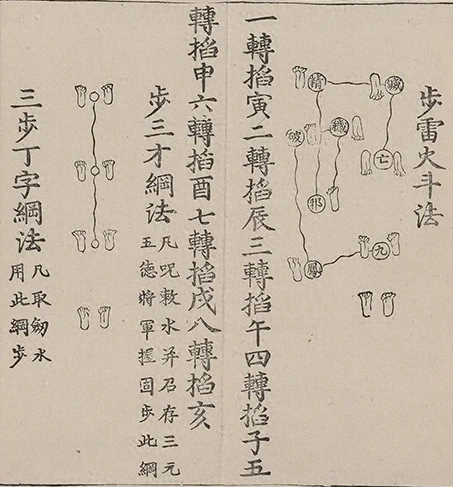 步雷火斗法
九
鳳
破
穢
精
邪
滅
亡
一轉搯寅二轉搯辰三轉搯午四轉搯子五
轉搯申六轉搯酉七轉搯戌八轉搯亥
步三才綱法
凡咒敕水并召存三元
五德將軍握固步此綱
三步丁字綱法
凡取劒水
用此綱步